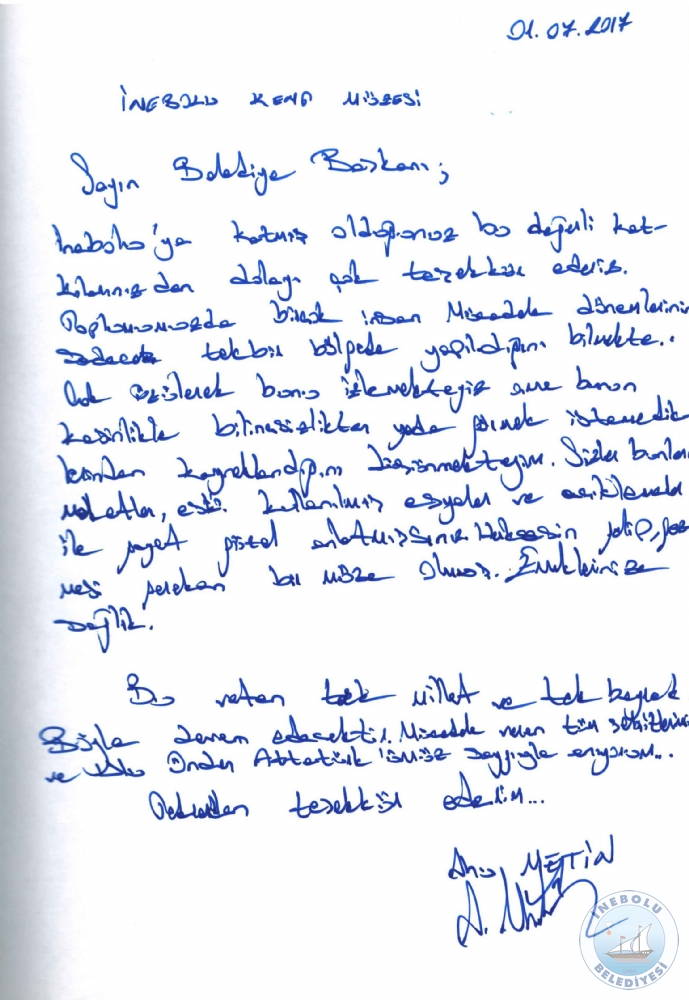 01.07.2017
İNEBOLU KENT MÜZESİ
Sayın Belediye Başkanı;
İnebolu'ya katmış olduğunuz bu değerli kat-
kılarınızdan dolayı çok teşekkür ederiz.
Toplumumuzda birçok insan Mücadele dönemlerinin
sadece tek bir bölgede yapıldığını bilmekte..
Çok üzülerek bunu izlemekteyiz ama bunun
kesinlikle bilinçsizlikten yada görmek istemedik
lerinden kaynaklandığını düşünmekteyim. Sizler bunları
maketler, eski kullanılmış eşyalar ve açıklamalar
ile gayet güzel anlatmışsınız. Herkesin gelip, gez
mesi gereken bir müze olmuş. Emeklerinize
sağlık.
Bu vatan tek millet ve tek bayrak
Böyle devam edecektir. Mücadele veren tüm şehitlerimizi
ve Ulu Önder Atatürk'ümüzü saygıyla anıyorum...
Tekrardan teşekkür ederim...
METİN
İNEBOLU
BELEDİYESİ